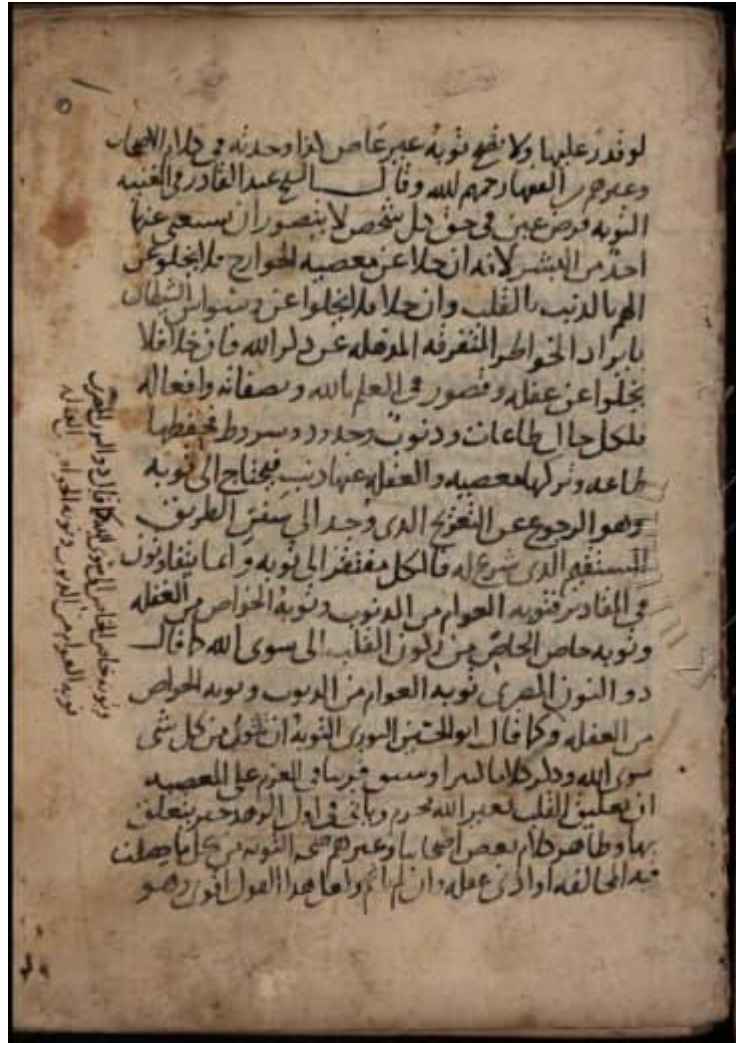 لو قدر عليها ولا تصح توبة غير عاص كذا وجدته في كلام الاصحاب
وغيرهم من الفقهاء رحمهم الله وقال الشيخ عبد القادر في الغنية
التوبة فرض عين في حق كل شخص لا يتصور ان يستغني عنها
احد من البشر لانه ان خلا عن معصية الجوارح فلا يخلوا عن
الهم بالذنب بالقلب وان خلا فلا يخلوا عن وسواس الشيطان
بايراد الخواطر المتفرقة المذهلة عن ذكر الله فان خلا فلا
يخلوا عن غفلة وقصور في العلم بالله وبصفاته وافعاله
فلكل حال طاعات وذنوب وحدود وشروط فحفظها
طاعة وتركها معصية والغفلة عنها ذنب فيحتاج الى توبة
وهو الرجوع عن التعويج الذى وجد الى سنن الطريق
المستقيم الذى شرع له فالكل مفتقر الى توبة وانما يتفاوتون
في المقادير فتوبة العوام من الذنوب وتوبة الخواص من الغفلة
وتوبة خاص الخاص من ركون القلب الى سوى الله كما قال
ذو النون المصرى توبة العوام من الذنوب وتوبة الخواص
من الغفلة وكما قال ابو الحسين النورى التوبة ان تتوب من كل شى
سوى الله وذكر كلاما كثيرا وسبق قريبا في العزم على المعصية
ان تعليق القلب بغير الله محرم وياتي في اول الزهد خبر يتعلق
بها وظاهر كلام بعض اصحابنا وغيرهم صحة التوبة من كل ما حصلت
فيه المخالفة او ادنى غفلة وان لم ياثم ولعل هذا القول اقوى وهو
وتوبة خاص الخاص الى سوى الله كما قال ذو النون المصرى
توبة العوام من الذنوب وتوبة الخواص الغفلة